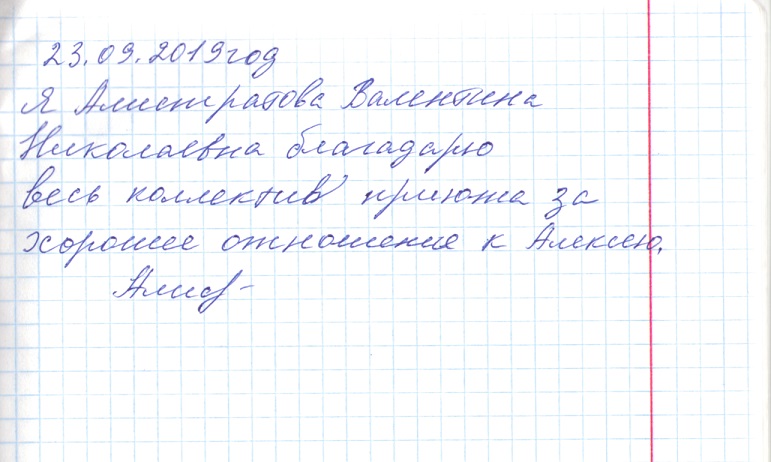 23.09.2019год
Я Алистратова Валентина
Николаевна благадарю
весь коллектив приюта за
хорошее отношение к Алексею.